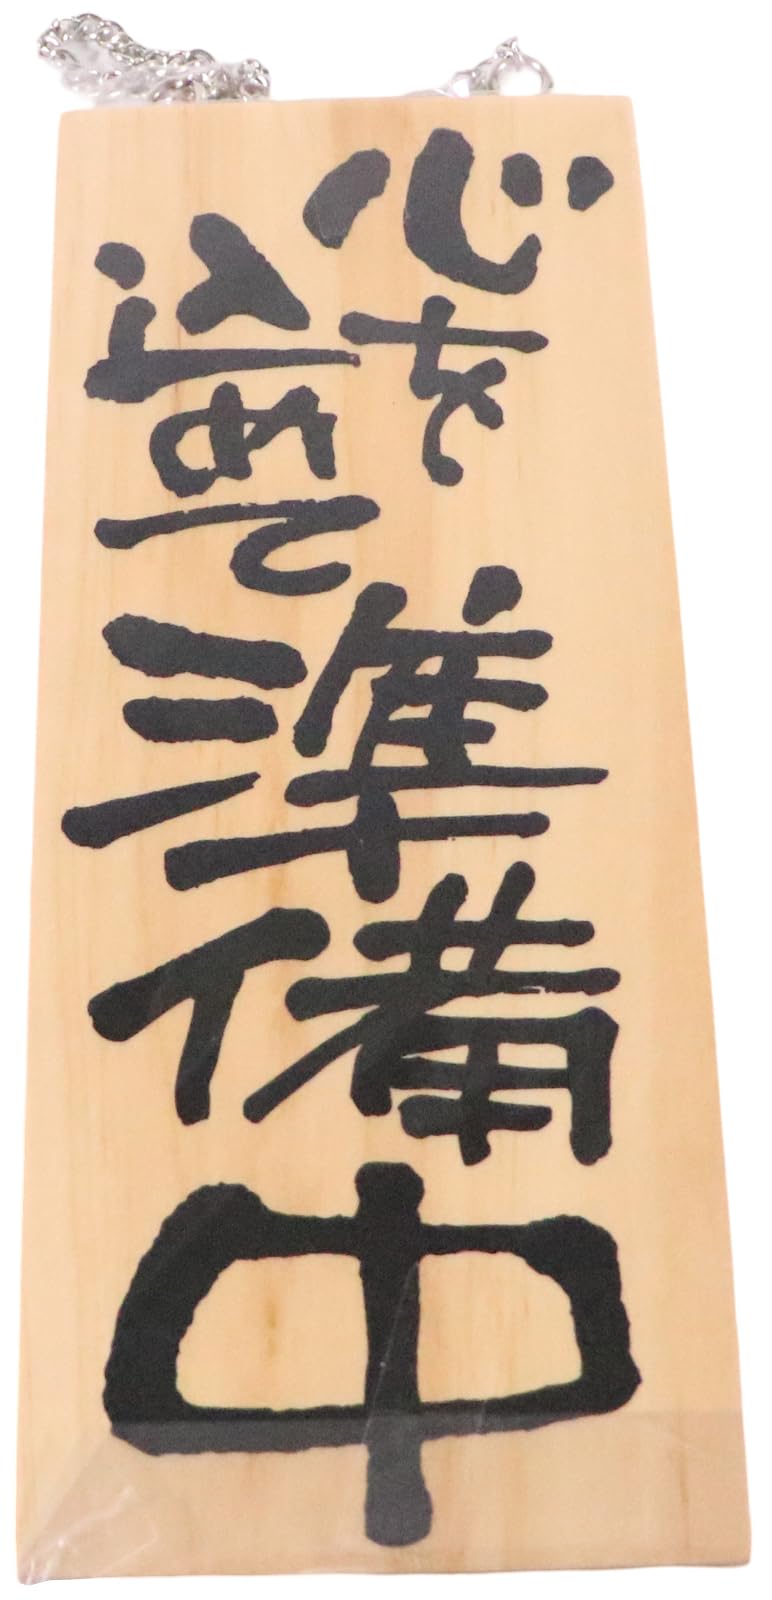 心を
込めて
準備
中